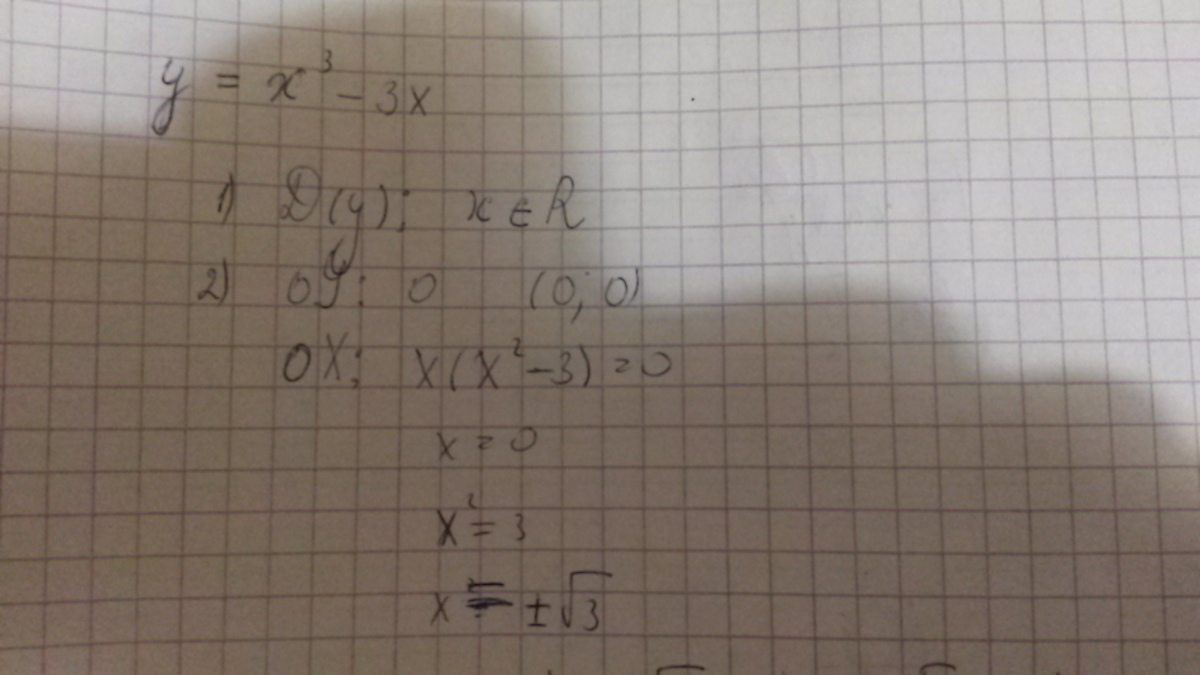 y = x³ - 3x
1) D(y): x ∈ R
2) OY: 0 (0; 0)
OX: x(x² - 3) = 0
x = 0
x² = 3
x = ±√3